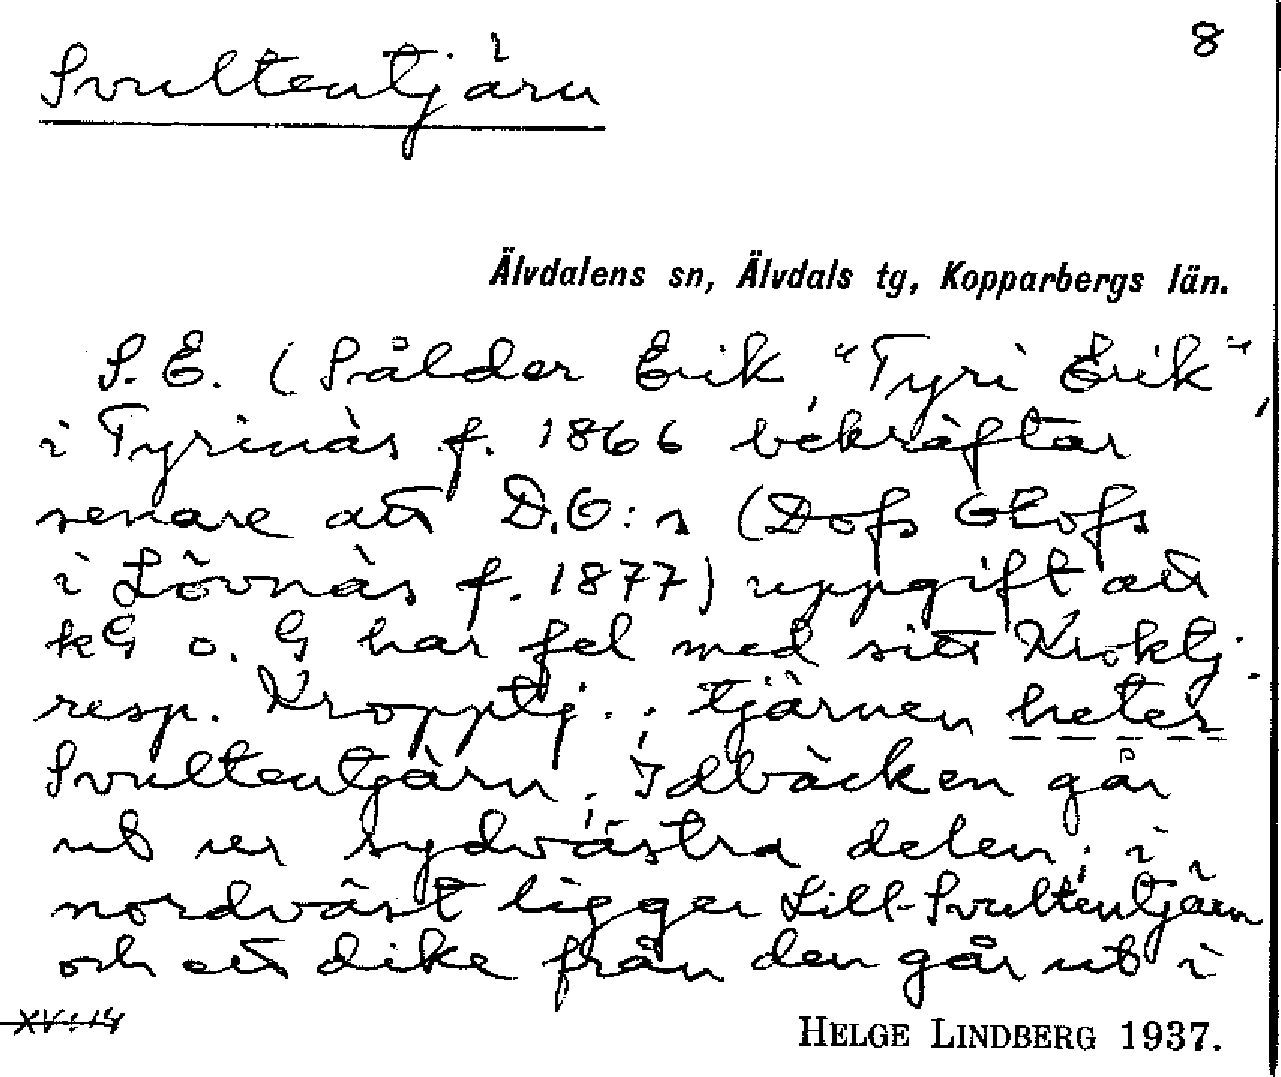 8
Svultentjärn
Älvdalens sn, Älvdals tg, Kopparbergs län.
S. E. (Sålder Erik, "Tyri Erik",
i Tyrinäs f. 1866 bekräftar
senare att D.O:s (Dofs Olofs
i Lövnäs f. 1877) uppgift att
kG o. G har fel med sitt Kroktj.
resp. Kropptj.; tjärnen heter
Svultentjärn; Idbäcken går
ut ur sydvästra delen; i
nordväst ligger Lill-Svultentjärn
och ett dike från den går ut i
XV:14
HELGE LINDBERG 1937.